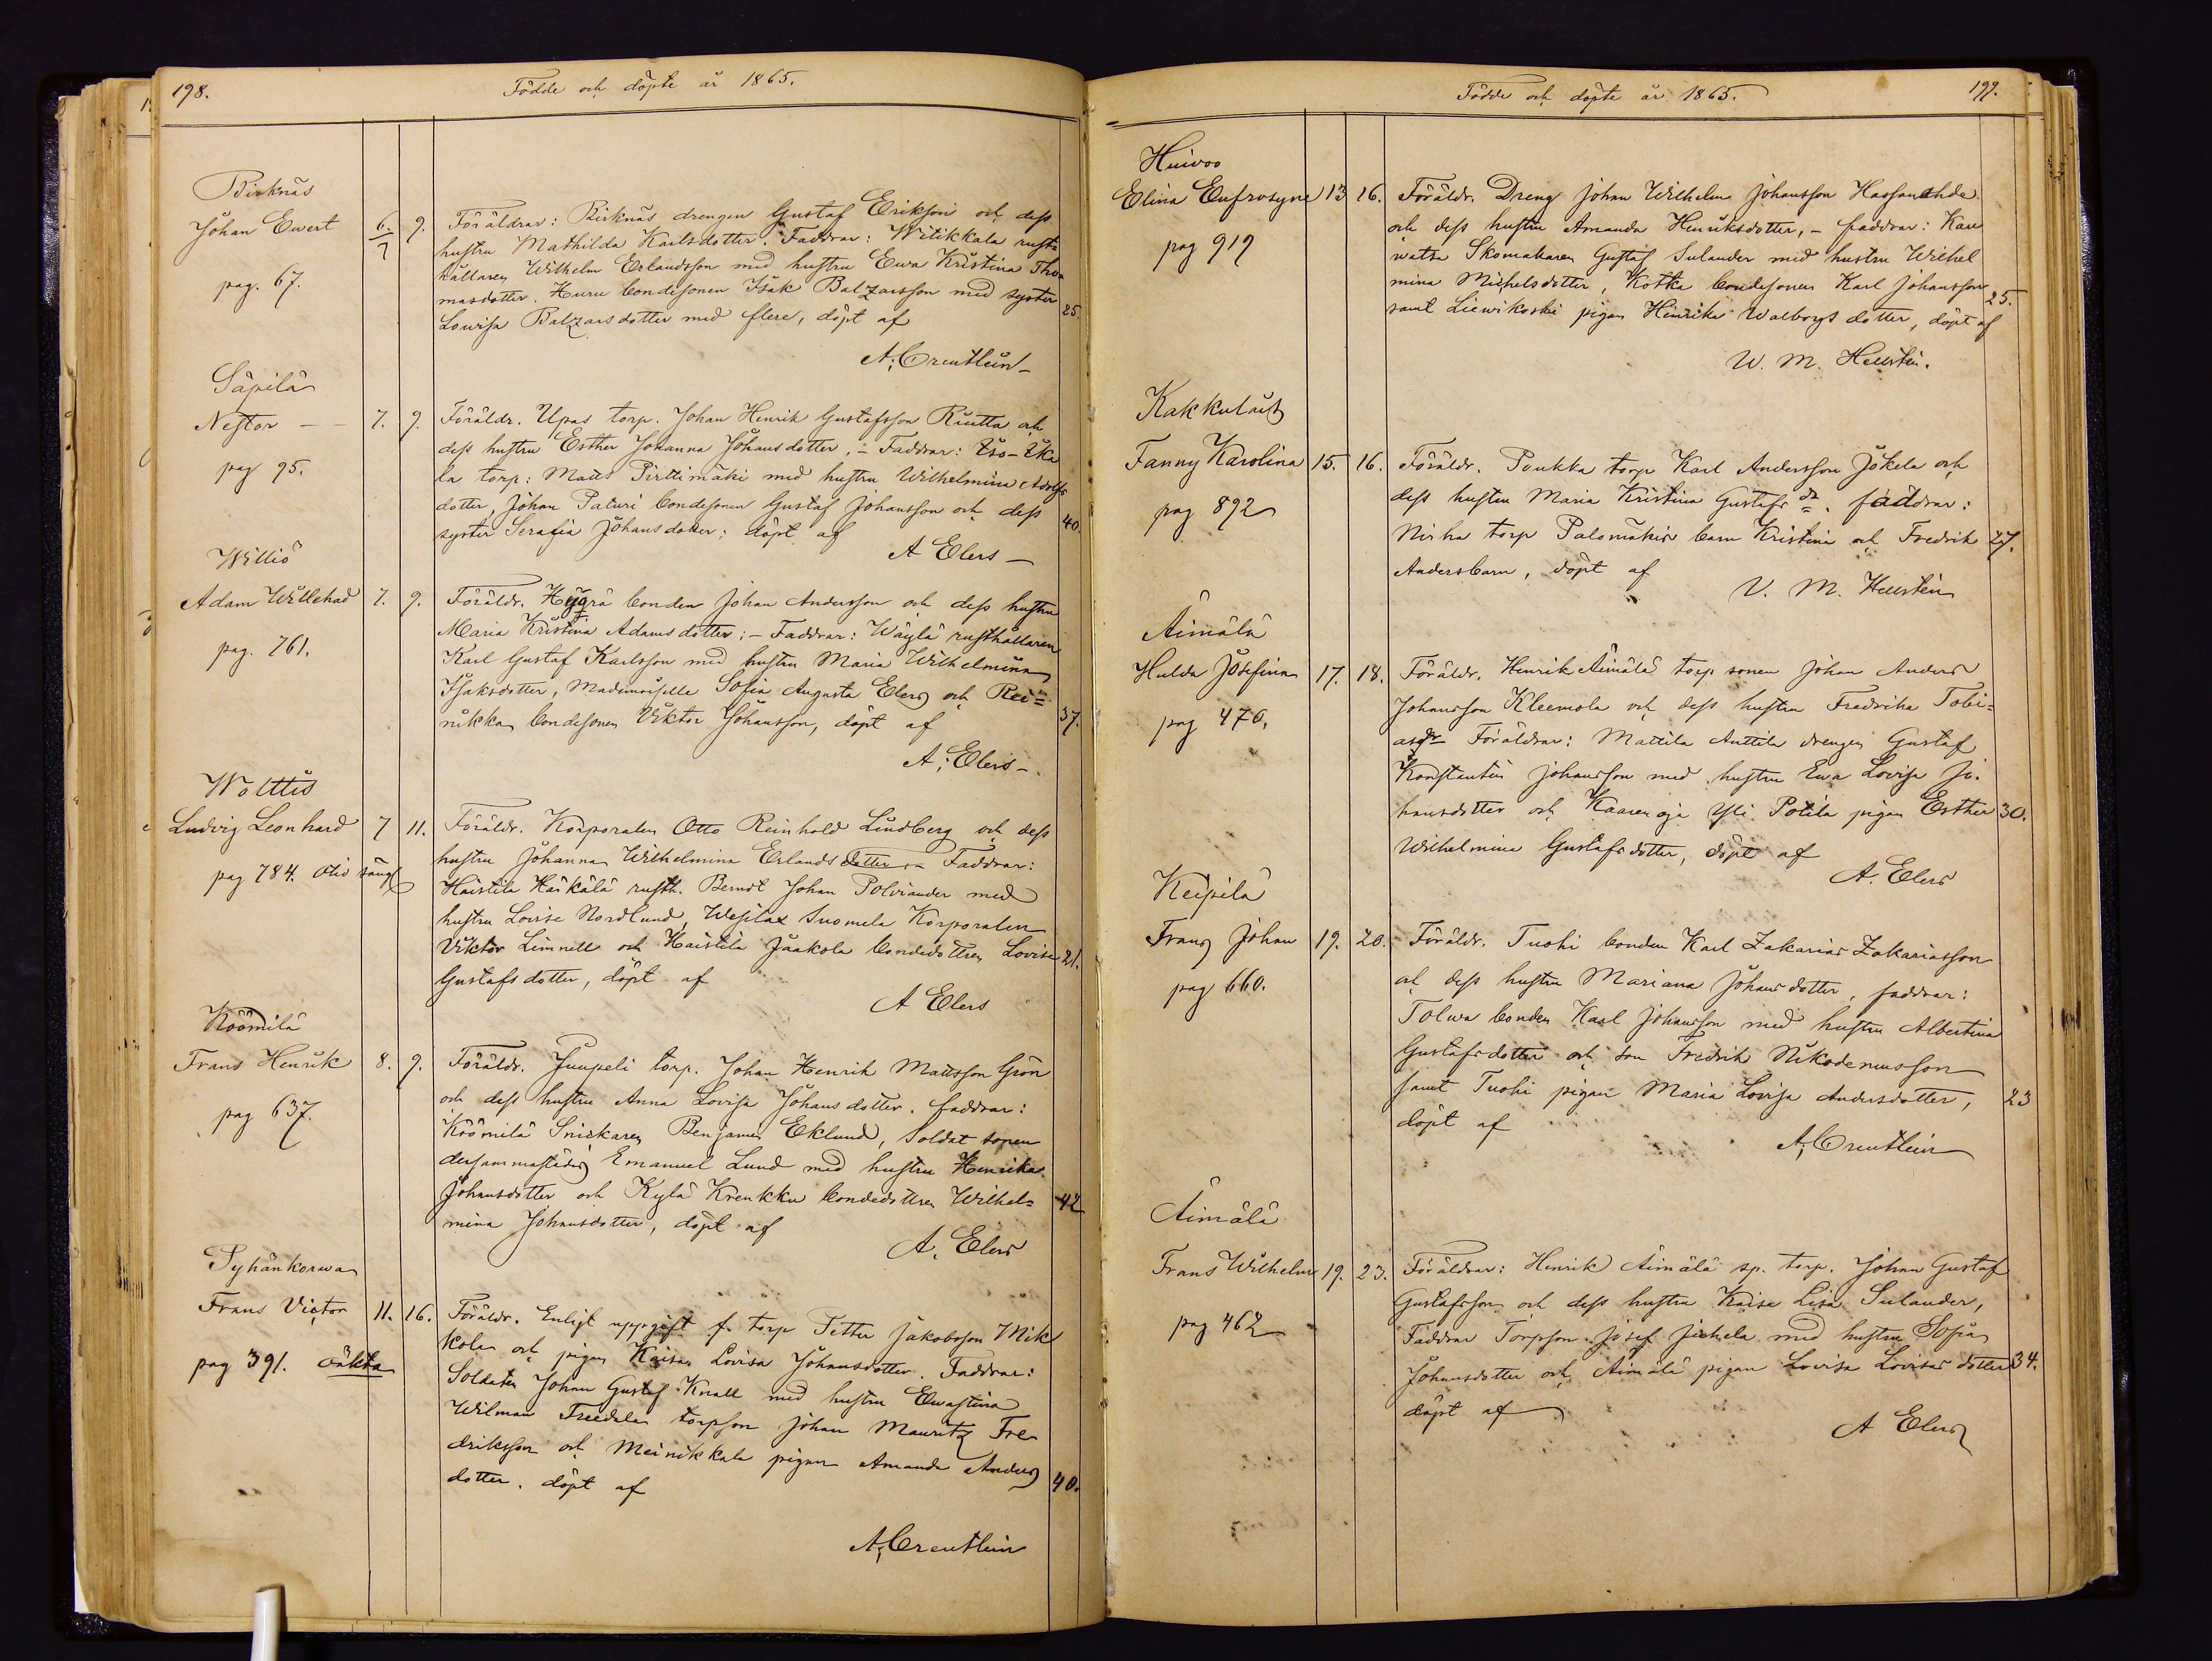 198.
Födde och döpte år 1865.
Birknäs
Johan Ewert 6./7 9. Föräldrar: Birknäs drengen Gustaf Erikson och dess
hustru Mathilda Karlsdotter. Faddrar: Witikkala rust=
pag. 67.
hållaren Wilhelm Erlandsson med hustru Ewa Kristina Tho=
masdotter. Huru bondesonen Isak Balzarsson med syster
Lowisa Balzarsdotter med flere, döpt af 25.
A; Creutlein
Säpilä
Nestor 7. 9. Föräldr. Upas torp. Johan Henrik Gustafsson Riutta och
dess hustru Esther Johanna Johansdotter, - Faddrar: Iso-Ika
pag 95.
la torp: Matts Pirttimäki med hustru Wilhelmina Adolfs
dotter, Johan Paturi bondesonen Gustaf Johansson och dess
syster Serafia Johansdotter; döpt af 40.
A Elers
Williö
Adam Willehad 7. 9. Föräldr. Hygrä bonden Johan Andersson och dess hustru
Maria Kristina Adamsdotter; - Faddrar: Wäylä rusthållaren
pag. 761.
Karl Gustaf Karlsson med hustru Maria Wilhelmina
Isaksdotter, Mademoiselle Sofia Augusta Elers och Rei=
nikka bondesonen Viktor Johansson, döpt af 37.
A; Elers
Wolttis
Ludvig Leonhard 7 11. Föräldr. Korporalen Otto Reinhold Lindberg och dess
hustru Johanna Wilhelmina Erlandsdotter, - Faddrar:
pag 784.
Haistila Häikälä rusth. Berndt Johan Polviander med
hustru Lovise Nordlund, Wesilax Suomela Korporalen
Viktor Limnell och Haistila Jaakola bondedottren Lovisa 21.
Gustafsdotter, döpt af
A Elers
Köömilä
Frans Henrik 8. 9. Föräldr. Juupeli torp. Johan Henrik Mattsson Grön
och dess hustru Anna Lovisa Johansdotter. faddrar:
pag 637.
Köömilä Snickaren Benjamin Eklund, Soldat sonen
dersammastädes Emanuel Lund med hustru Henrika
Johansdotter och Kylä Krenkku bondedottren Wilhel= 42
mina Johansdotter, döpt af
A. Elers
Pyhänkorwa
Frans Victor 11. 16. Föräldr. Enligt uppgift f. torp Petter Jakobsson Mik
kola och pigan Kaisa Lovisa Johansdotter. Faddrar:
pag 391. oäkta
Soldaten Johan Gustaf Knall med hustru Ewastina
Wilman Freedala torpson Johan Mauritz Fre
driksson och Meinikkala pigan Amanda Anders 40.
dotter. döpt af
A; Creutlein
Födde och döpte år 1865.
199.
Huivoo
Elina Eufrosyne 13 16. Föräldr. Dreng Johan Wilhelm Johansson
och dess hustru Amanda Henriksdotter, - faddrar: Kau
pag 919
watsa Skomakaren Gustaf Sulander med hustru Wilhel
mina Michelsdotter, Kotka bondesonen Karl Johansson 25.
samt Liewikoski pigan Henrika Walborgsdotter, döpt af
W. M. Hellstén.
Kakkulais
Fanny Karolina 15. 16. Föräldr. Poukka torp Karl Andersson Jokela och
dess hustru Maria Kristina Gustafs dr. faddrar:
pag 892
Nirha torp Palomäkis barn Kristina och Fredrik 27.
Andersbarn, döpt af
V. M. Hellstén
Äimälä
Hulda Josefina 17. 18. Föräldr. Henrik Äimälä torp sonen Johan Anders
Johansson Kleemola och dess hustru Fredrika Tobi=
pag 470.
asdr Föräldrar: Mattila Anttila drengen Gustaf
Konstantin Johansson med hustru Ewa Lovisa Jo=
hansdotter och Kaarenoja Yli Potila pigan Esther 30.
Wilhelmina Gustafsdotter, döpt af
A. Elers
Keipilä
Frans Johan 19. 20. Föräldr. Tuohi bonden Karl Zakarias Zakariasson
och dess hustru Mariana Johansdotter, faddrar:
pag 660.
Tolwa bonden Karl Johansson med hustru Albertina
Gustafsdotter och son Fredrik Nikodemusson
samt Tuohi pigan Maria Lovisa Andersdotter, 23
döpt af
A; Creutlein
Äimälä
Frans Wilhelm 19. 23. Föräldrar: Henrik Äimälä sp. torp. Johan Gustaf
Gustafsson och dess hustru Kaisa Lisa Sulander,
pag 462
Faddrar Torpson Josef Jickela med hustru Sofia
Johansdotter och Äimälä pigan Lovisa Lovisas dotter 34.
döpt af
A Elers